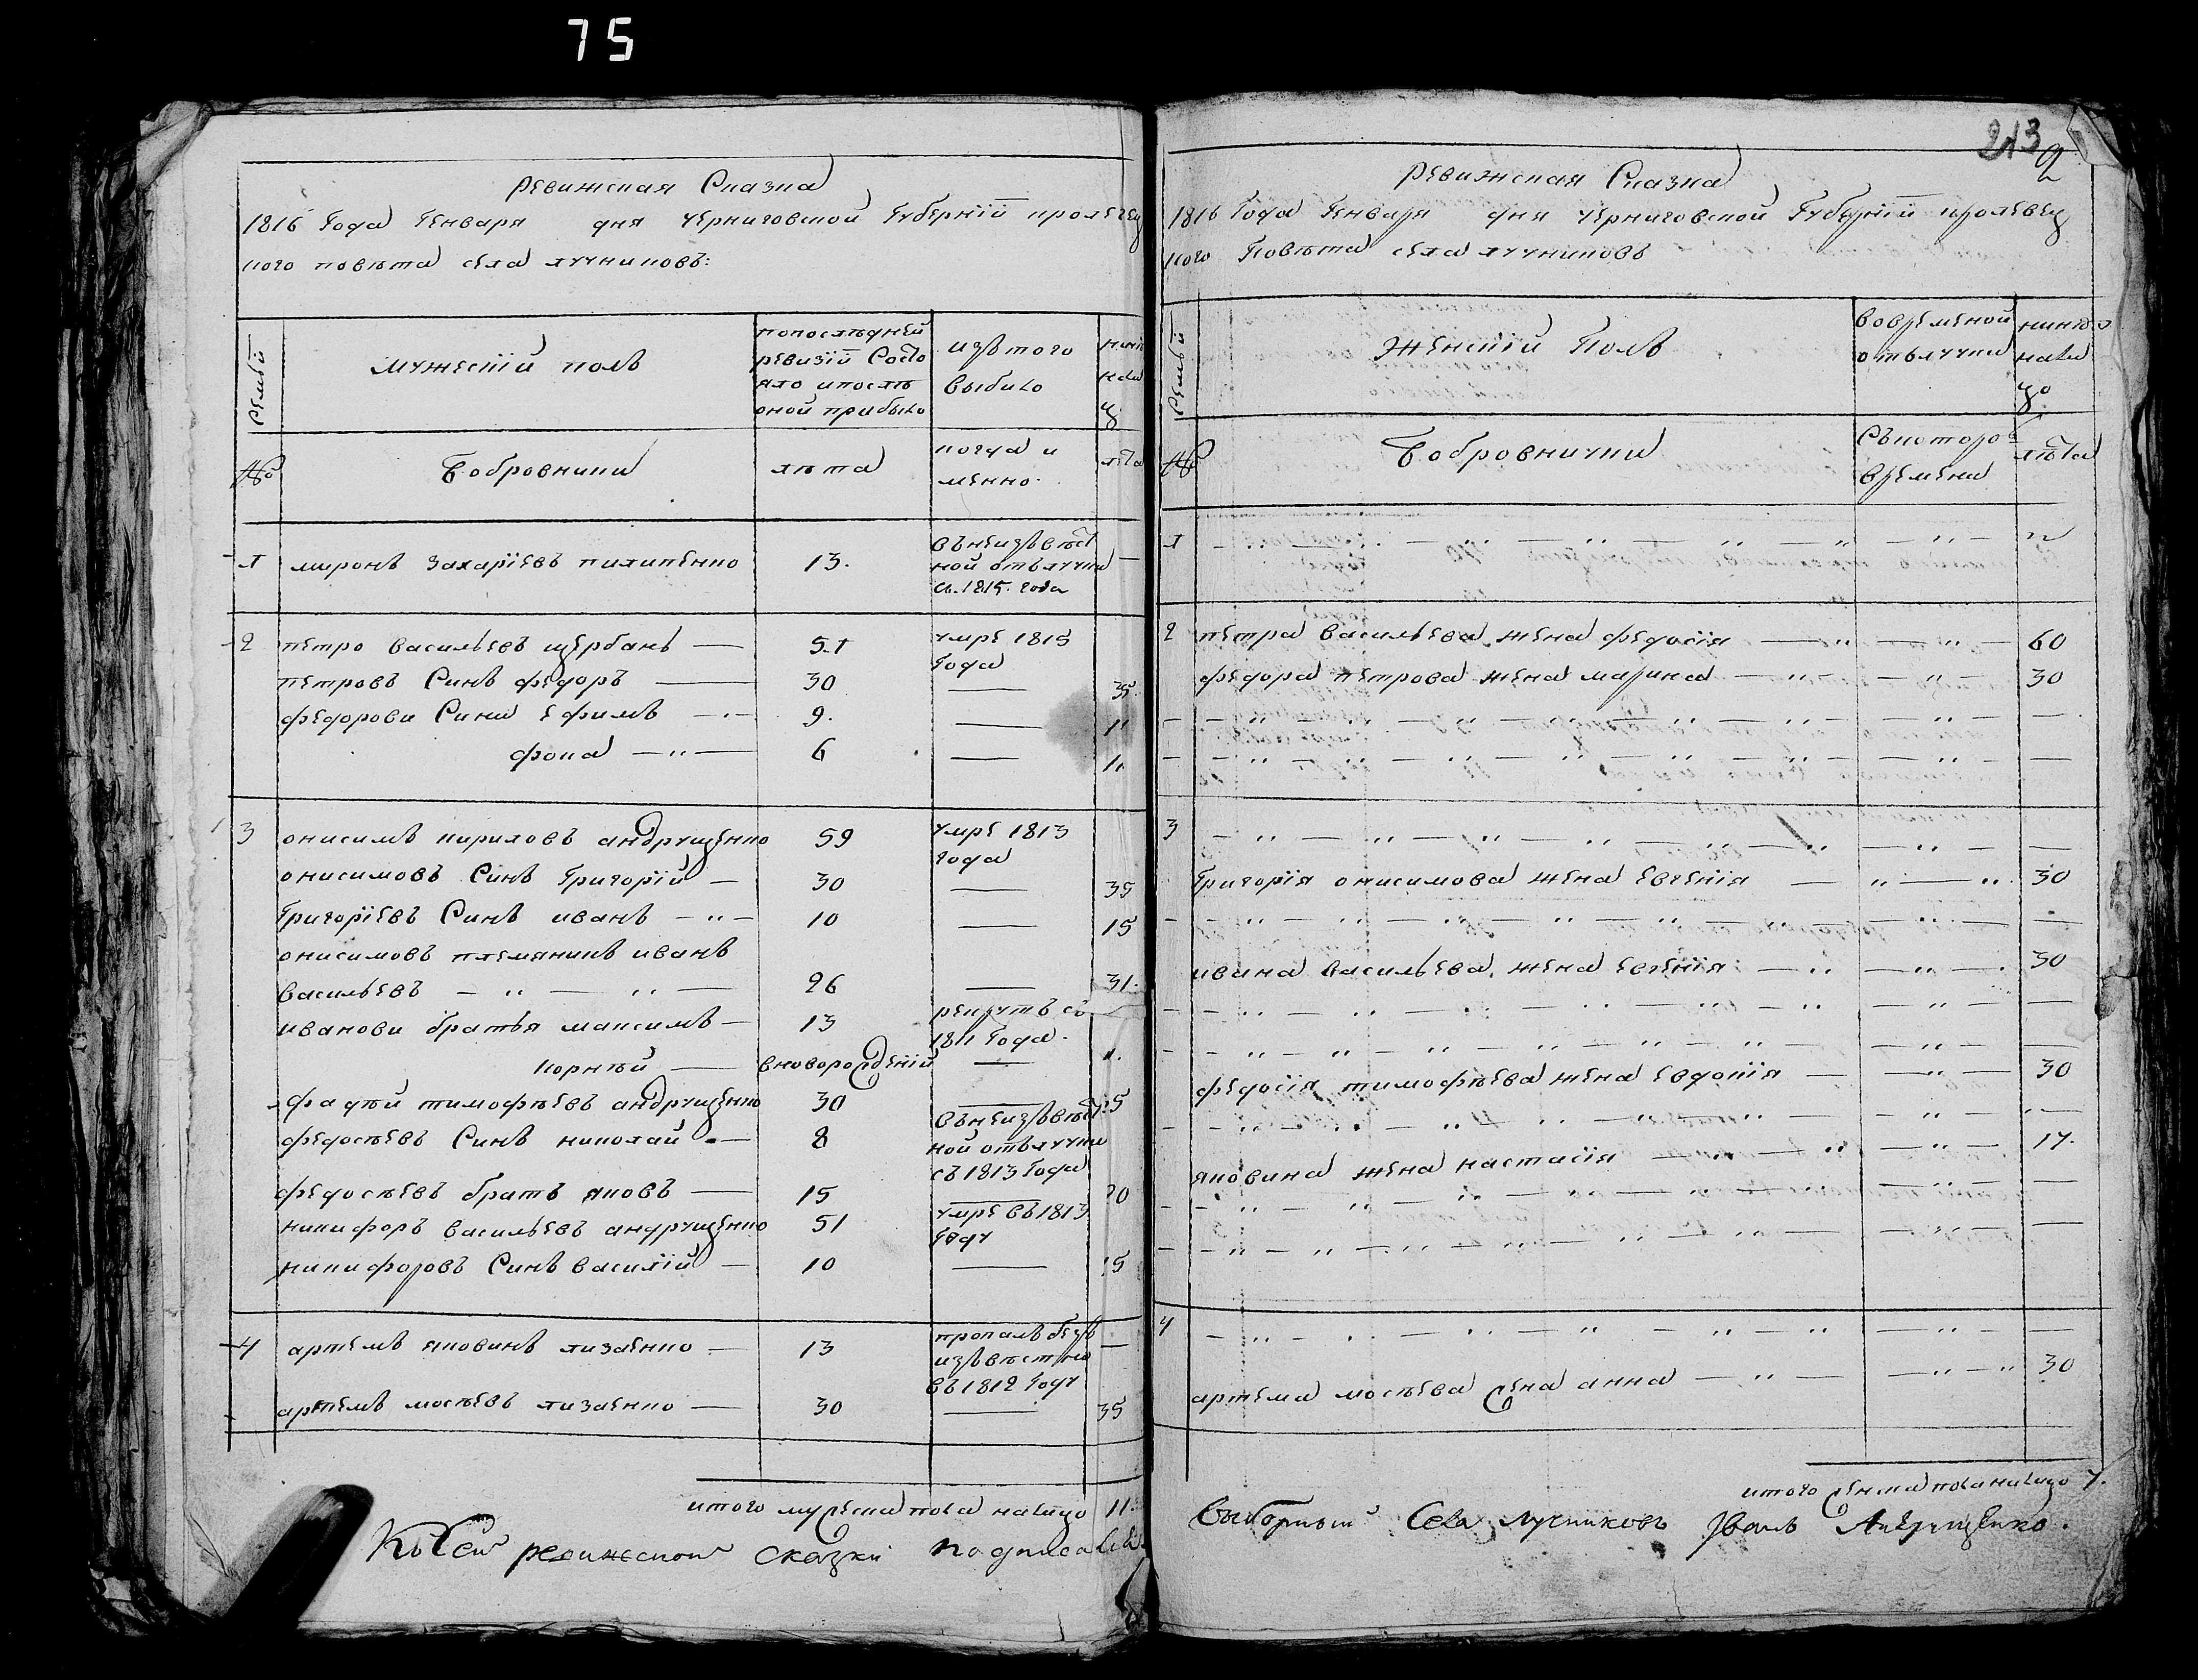 75
Ревижская Сказка
1816 Года Генваря дня Черниговской Губернїи кролевец
кого повѣта села лучниковъ:
Семьи
мужескїй полъ
попослѣдней
ревизїи Состо
яло ипослѣ
оной прибыло
изътого
выбило
нинѣ
нали
ц.
№
Бобровники
лѣта
когда и
менно.
лѣта
1 миронъ Захарїевъ пилипенко 13. въНеизвѣст
ной отълучки
съ. 1815. года
—
2 петро васильевъ щербань — 51 умре 1815
Года
петровъ Синъ федоръ — 30 — 35.
федорови Сини Ефимъ — 9. — 1
фока — " — 6 — 11
3 онисимъ кириловъ андрущенко 59 умре 1813
года
онисимовъ Синъ Григорїй — 30 — 35
Григорїевъ Синъ иванъ — " — 10 — 15
онисимовъ племяникъ иванъ
васильевъ — " — " — 26 — 31.
иванови братья максимъ — 13 рекрутъ съ
1811 Года.
корнѣй — вноворожденїй —
фадѣй тимофѣевъ андрущенко 30 — 35
федосѣевъ Синъ николай — 8 въНеизвѣст
ной отълучки
съ 1813 Года
федосѣевъ братъ яковъ — 15 — 20
никифоръ васильевъ андрущенко 51 умре въ 1813
Году
никифоровъ Синъ василїй — 10 — 15
4 артемъ яковинъ лизаенко — 13 пропалъ безъ
извѣстно
въ 1812 Году
—
артемъ мосѣевъ лизаенко — 30 — 35
итого мужеска пола налицо 11.
Къ Сей ревижской сказки подписался
213
2
Ревижская Сказка
1816 Года Генваря дня черниговской Губернїи кролевец
кого Повѣта села лучниковъ
Семьи
Женскїй Полъ
вовременой
отълучки
нинѣ
нали
цо
№
Бобровнички
Съкоторов
времени
лѣта
1 — " — " — " — " — " — "
2 петра васильева жена федосїя — " — " — 60
федора петрова жена марина — " — " — 30
— " — " — " — " — " — " —
— " — " — " — " — " — " —
3 — " — " — " — " — " — " —
Григорїя онисимова жена евгенїя — " — " 30
— " — " — " — " — " — " —
ивана васильева жена евгенїя — " — " — 30
— " — " — " — " — " — " —
— " — " — " — " — " — " —
федосїя тимофѣева жена евдокїя — " — 30
— " — " — " — " — " — " —
яковина жена настасїя — " — " — 17.
— " — " — " — " — " — " —
— " — " — " — " — " — " —
4 — " — " — " — " — " — " —
артема мосѣева жена анна — " — " — " 30
итого женска пола налицо 7.
выборный Села Лучниковъ Иванъ Андрущенко.